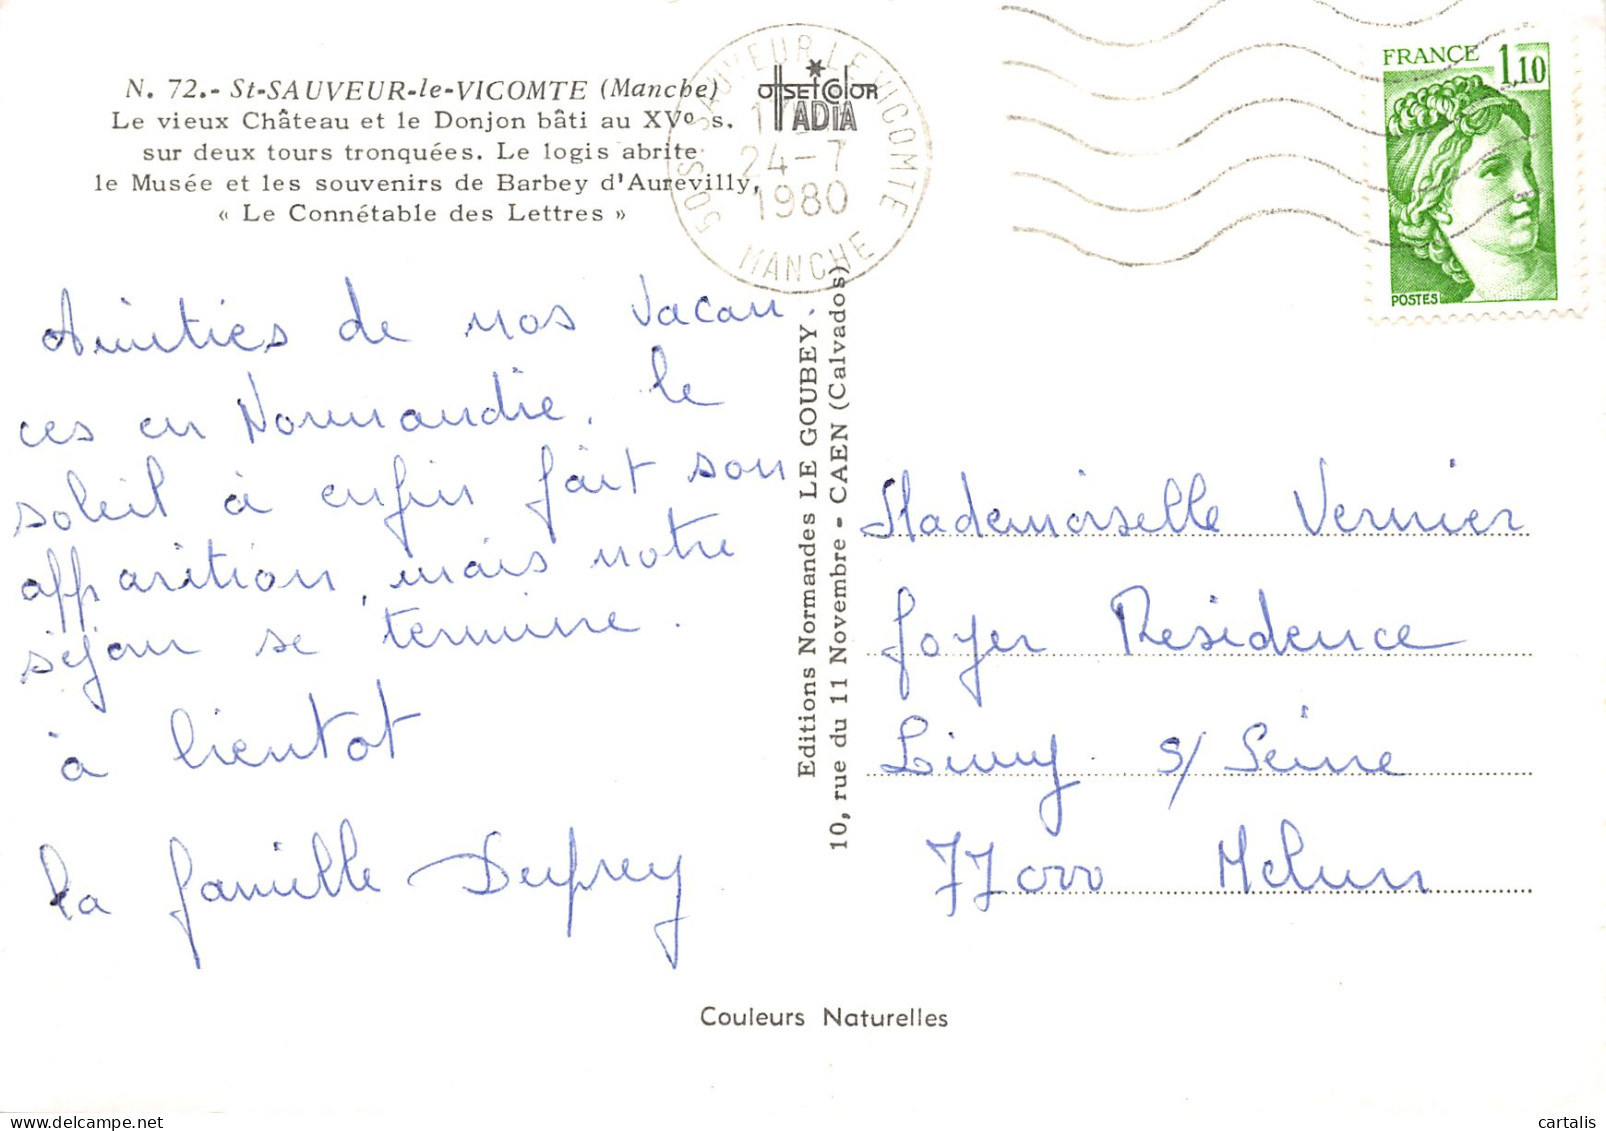 N. 72.- St-SAUVEUR-le-VICOMTE (Manche)
Le vieux Château et le Donjon bâti au XVº s.
sur deux tours tronquées. Le logis abrite
le Musée et les souvenirs de Barbey d'Aurevilly,
« Le Connétable des Lettres »
50S SAUVEUR LE VICOMTE
24-7
1980
MANCHE
offset color
IADIA
FRANCE 1,10
POSTES
Amitiés de nos vacan.
ces en Normandie, le
soleil à enfin fait son
apparition, mais notre
séjour se termine.
à bientot
la famille Duprey
Editions Normandes LE GOUBEY
10, rue du 11 Novembre - CAEN (Calvados)
Mademoiselle Vernier
foyer Residence
Livry s/ Seine
77000 Melun
Couleurs Naturelles
cartalis